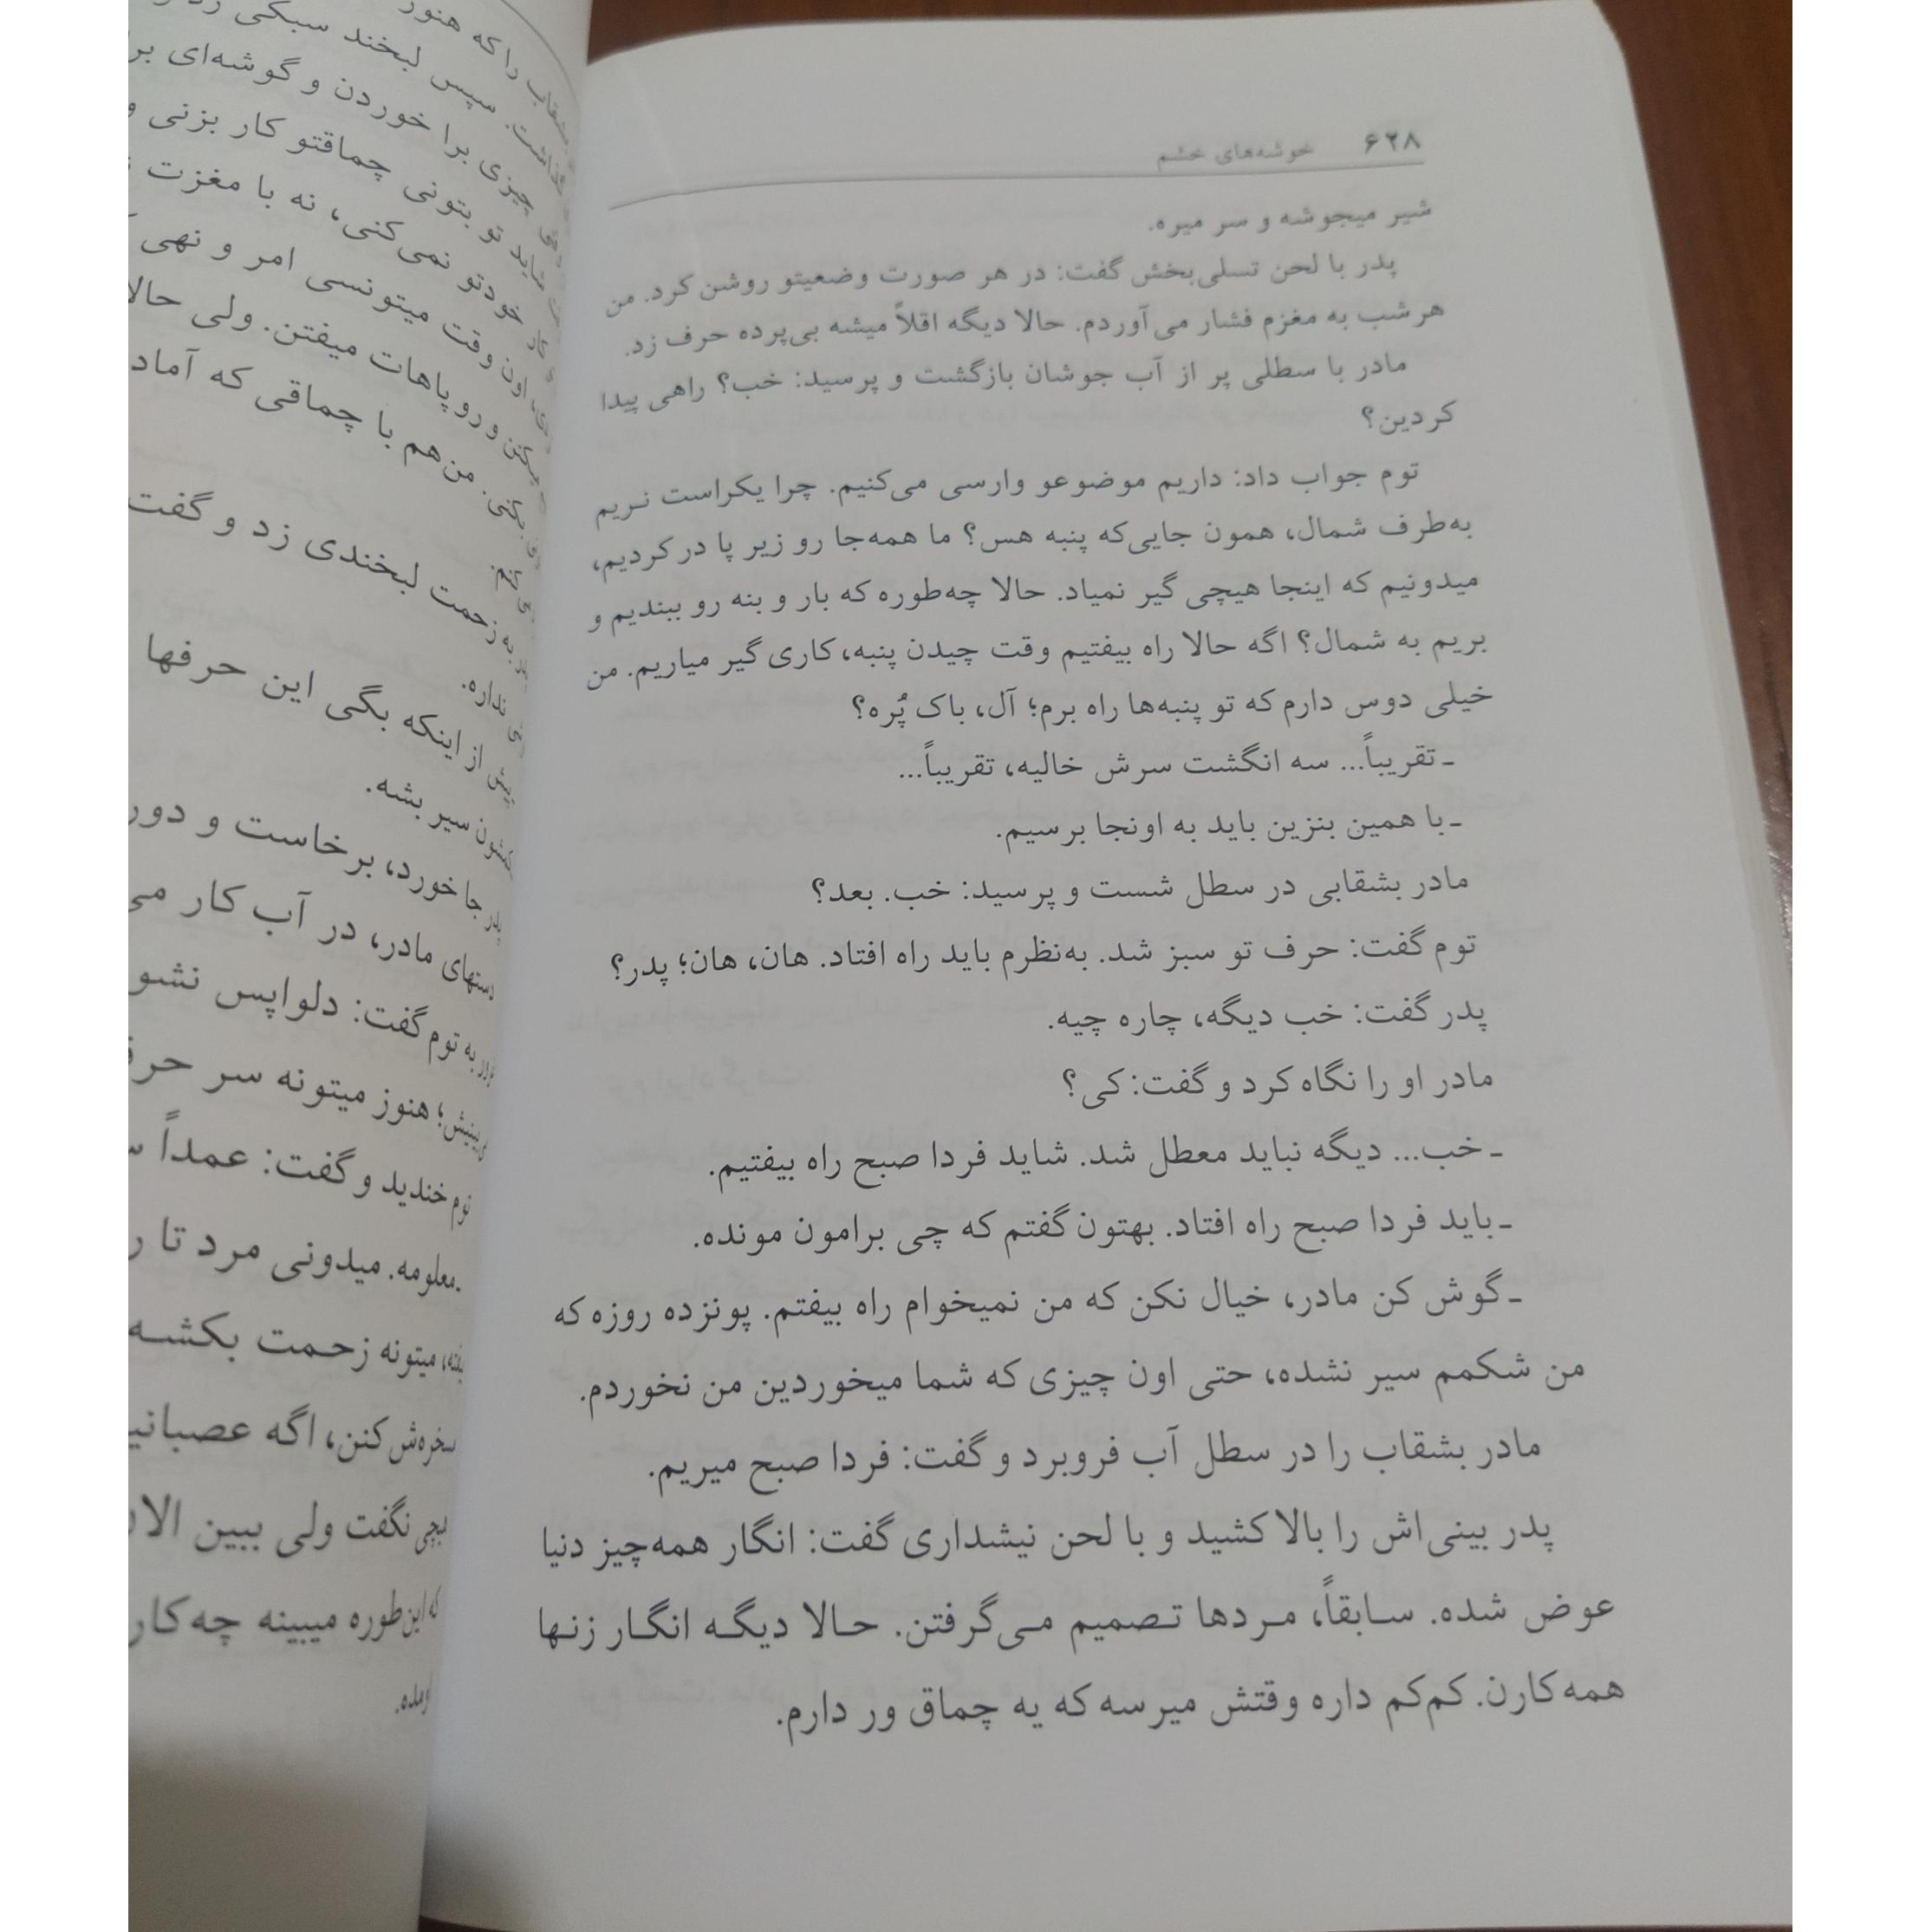 ۶۲۸ خوشه‌های خشم
شیر میجوشه و سر میره.
پدر با لحن تسلی‌بخش گفت: در هر صورت وضعیتو روشن کرد. من
هرشب به مغزم فشار می‌آوردم. حالا دیگه اقلاً میشه بی‌پرده حرف زد.
مادر با سطلی پر از آب جوشان بازگشت و پرسید: خب؟ راهی پیدا
کردین؟
توم جواب داد: داریم موضوعو وارسی می‌کنیم. چرا یکراست نریم
به‌طرف شمال، همون جایی‌که پنبه هس؟ ما همه‌جا رو زیر پا در کردیم،
میدونیم که اینجا هیچی گیر نمیاد. حالا چه‌طوره که بار و بنه رو ببندیم و
بریم به شمال؟ اگه حالا راه بیفتیم وقت چیدن پنبه، کاری گیر میاریم. من
خیلی دوس دارم که تو پنبه‌ها راه برم؛ آل، باک پُره؟
ـ تقریباً... سه انگشت سرش خالیه، تقریباً...
ـ با همین بنزین باید به اونجا برسیم.
مادر بشقابی در سطل شست و پرسید: خب. بعد؟
توم گفت: حرف تو سبز شد. به‌نظرم باید راه افتاد. هان، هان؛ پدر؟
پدر گفت: خب دیگه، چاره چیه.
مادر او را نگاه کرد و گفت: کی؟
ـ خب... دیگه نباید معطل شد. شاید فردا صبح راه بیفتیم.
ـ باید فردا صبح راه افتاد. بهتون گفتم که چی برامون مونده.
ـ گوش کن مادر، خیال نکن که من نمیخوام راه بیفتم. پونزده روزه که
من شکمم سیر نشده، حتی اون چیزی که شما میخوردین من نخوردم.
مادر بشقاب را در سطل آب فروبرد و گفت: فردا صبح میریم.
پدر بینی‌اش را بالا کشید و با لحن نیشداری گفت: انگار همه‌چیز دنیا
عوض شده. سابقاً، مردها تصمیم می‌گرفتن. حالا دیگه انگار زنها
همه‌کارن. کم‌کم داره وقتش میرسه که یه چماق ور دارم.
را که هنوز
سپس لبخند سبکی
چیزی برا خوردن و گوشه‌ای
تو بتونی چماقتو کار بزنی و
خودتو نمی‌کنی، نه با مغزت
اون وقت میتونسی امر و نهی
و رو پاهات میفتن. ولی حالا
من هم با چماقی که
به زحمت لبخندی زد و گفت
نداره.
از اینکه بگی این حرفها
سیر بشه.
جا خورد، برخاست و دور
دستهای مادر، در آب کار
به توم گفت: دلواپس نشو
هنوز میتونه سر
توم خندید و گفت: عمداً
معلومه. میدونی مرد تا
میتونه زحمت بکشه
کنن، اگه
نگفت ولی ببین
این‌طوره میبینه چه‌کار